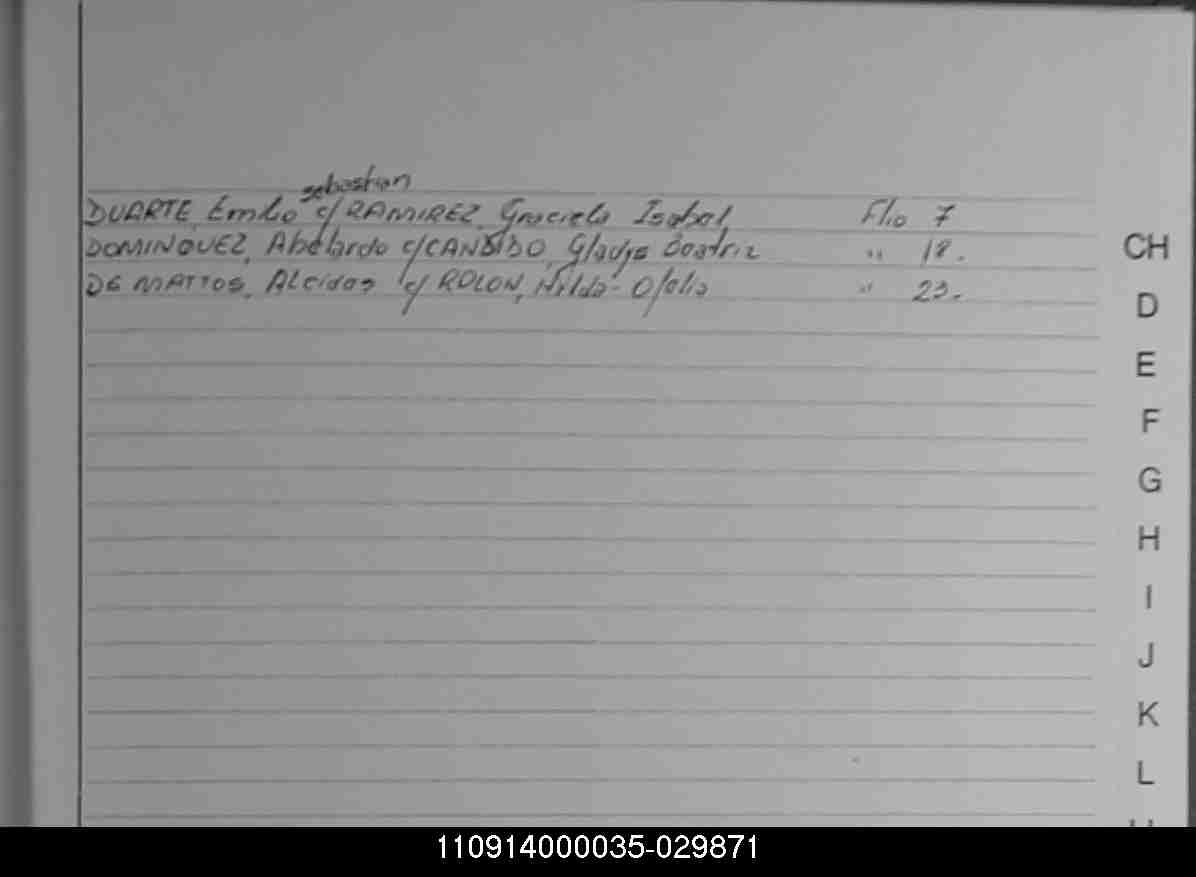 sebastian
DUARTE, Emilio c/ RAMIREZ, Graciela Isabel, Flio 7
DOMINQUEZ, Abelardo c/ CANDIDO, Gladys Beatriz " 18.
DE MATTOS, Alcidas c/ ROLON, Nilda Ofelia " 23.
CH
D
E
F
G
H
I
J
K
L
110914000035-029871